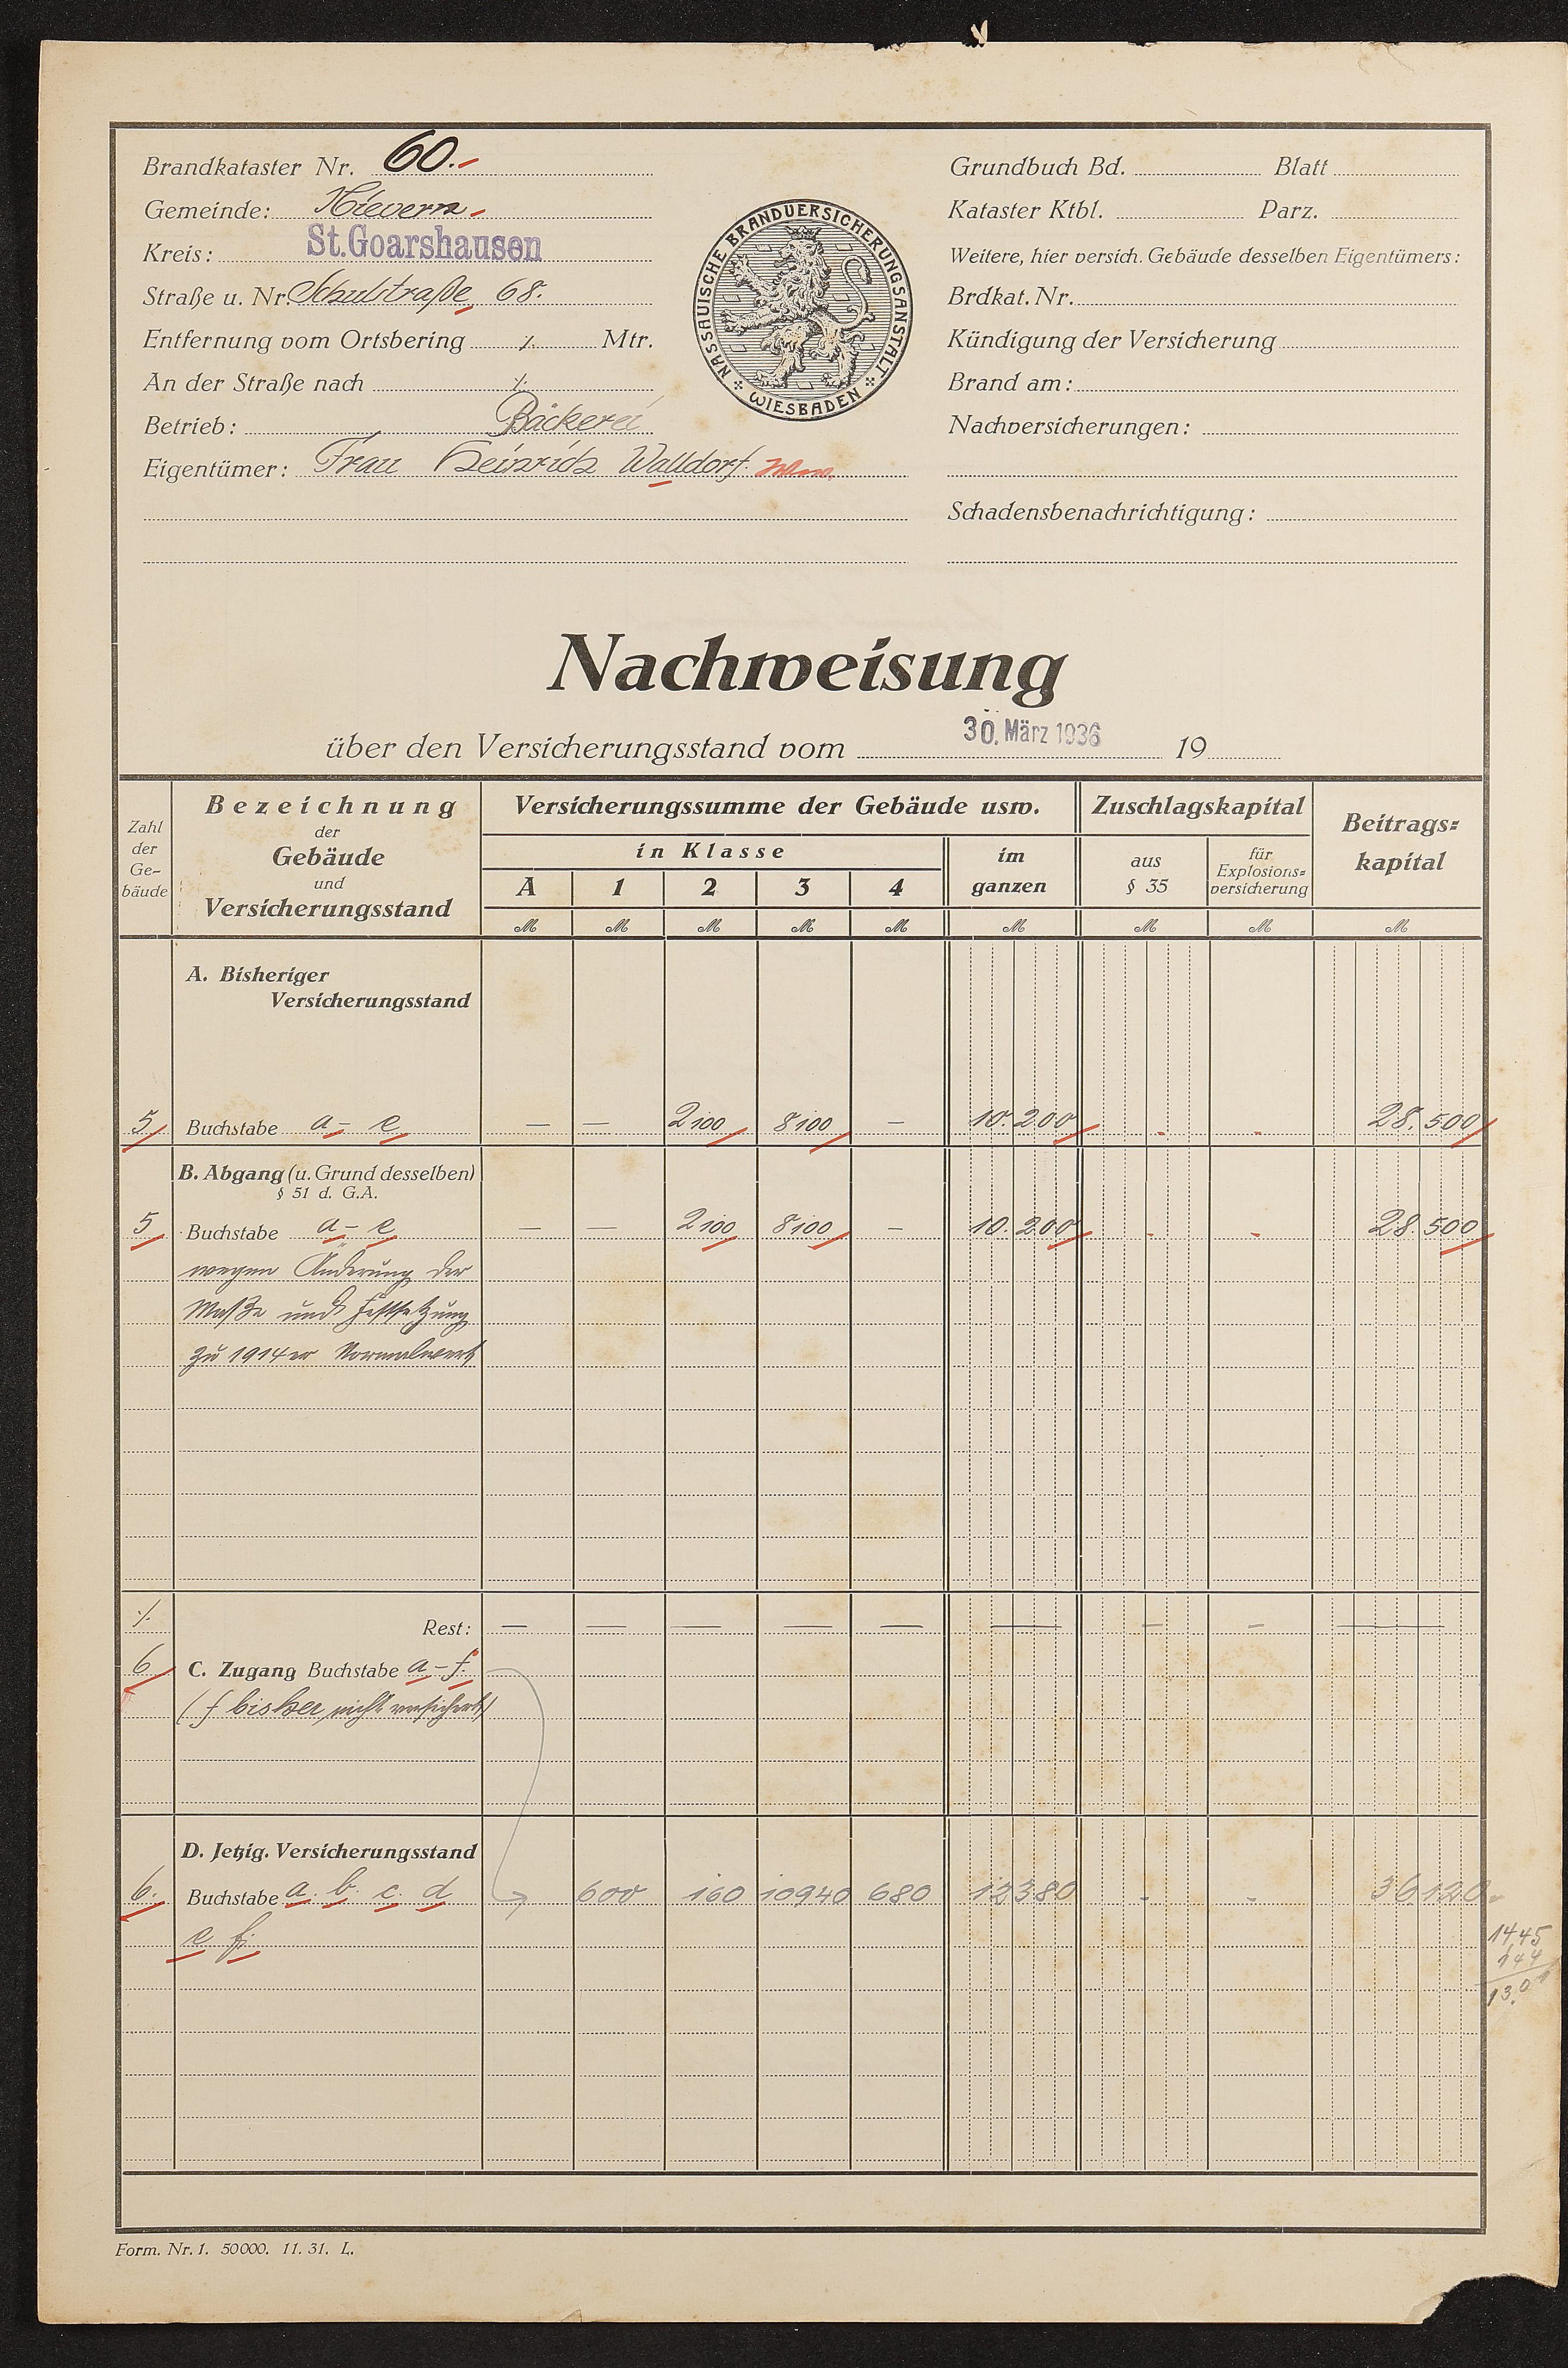 Brandkataster Nr. 60.
Gemeinde: Nievern
Kreis: St.Goarshausen
Straße u. Nr. Schulstraße 68.
Entfernung vom Ortsbering ./. Mtr.
An der Straße nach ./.
Betrieb: Bäckerei
Eigentümer: Frau Heinrich Walldorf. Ww.
NASSAUISCHE BRANDVERSICHERUNGSANSTALT
WIESBADEN
Grundbuch Bd. Blatt
Kataster Ktbl. Parz.
Weitere, hier versich. Gebäude desselben Eigentümers:
Brdkat. Nr.
Kündigung der Versicherung
Brand am:
Nachversicherungen:
Schadensbenachrichtigung:
Nachweisung
über den Versicherungsstand vom 30. März 1936 19
Zahl der Ge-bäude
Bezeichnung der Gebäude und Versicherungsstand
Versicherungssumme der Gebäude usw.
in Klasse
A 1 2 3 4
im ganzen
Zuschlagskapital
aus § 35
für Explosions=versicherung
Beitrags=kapital
M M M M M M M M M
A. Bisheriger
Versicherungsstand
5 Buchstabe a – e — — 2100 8100 — 10.200 - - 28.500
B. Abgang (u. Grund desselben)
§ 51 d. G.A.
5 Buchstabe a – e — — 2100 8100 — 10.200 - - 28.500
wegen Änderung der
Maße und Festsetzung
zu 1914er Normalwert
./. Rest: — — — — — — — — —
6 C. Zugang Buchstabe a – f.
(f bisher nicht versichert)
D. Jetzig. Versicherungsstand
6. Buchstabe a. b. c. d 600 160 10940 680 12380 - - 36120.-
e f.
14,45
144
13.01
Form. Nr. 1. 50000. 11. 31. L.